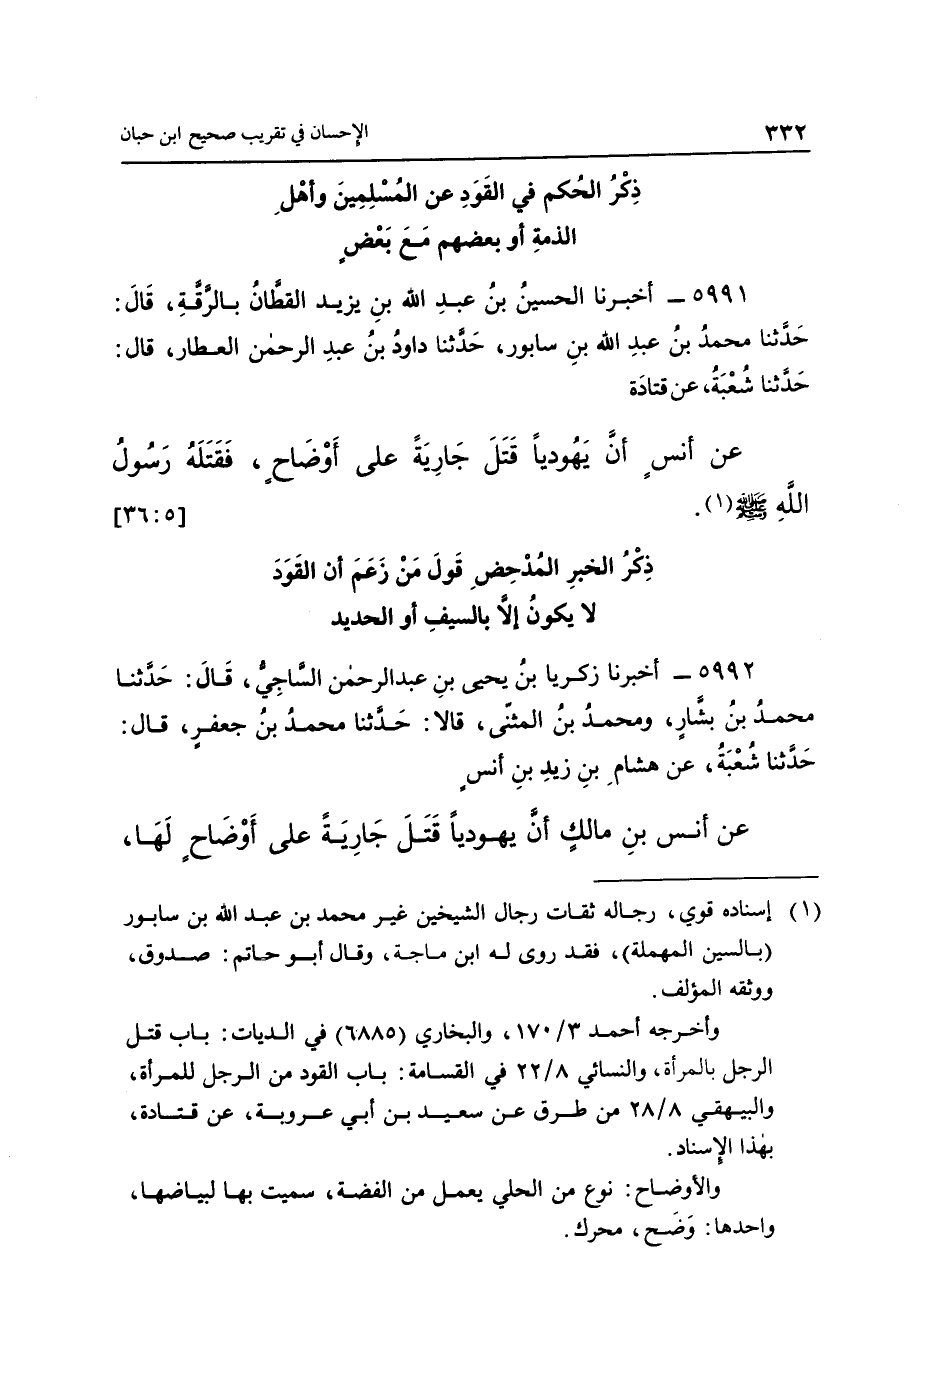 ٣٣٢ الإحسان في تقريب صحيح ابن حبان
ذِكْرُ الحُكم في القَوَدِ عن المُسْلِمِينَ وأهْلِ
الذمةِ أو بعضهم مَعَ بَعْضٍ
٥٩٩١ ــ أخبرنا الحسينُ بنُ عبدِ الله بنِ يزيد القطَّانُ بالرَّقَّةِ، قَالَ:
حَدَّثنا محمدُ بنُ عبدِ الله بنِ سابور، حَدَّثنا داودُ بنُ عبدِ الرحمٰن العطار، قال:
حَدَّثنا شُعْبَةُ، عن قتادَة
عن أنسٍ أنَّ يَهُودياً قَتَلَ جَارِيَةً على أَوْضَاحٍ، فَقَتَلَهُ رَسُولُ
اللَّهِ ﷺ(١). [٣٦:٥]
ذِكْرُ الخبرِ المُدْحِضِ قَولَ مَنْ زَعَمَ أن القَوَدَ
لا يكونُ إلَّا بالسيفِ أو الحديد
٥٩٩٢ ــ أخبرنا زكريا بنُ يحيى بنِ عبدالرحمٰن السَّاجِيُّ، قَالَ: حَدَّثنا
محمدُ بنُ بشَّارٍ، ومحمدُ بنُ المثنّى، قالا: حَدَّثنا محمدُ بنُ جعفرٍ، قال:
حَدَّثنا شُعْبَةُ، عن هشامِ بنِ زيدِ بنِ أنسٍ
عن أنس بنِ مالكٍ أنَّ يهودياً قَتَلَ جَارِيَةً على أَوْضَاحٍ لَهَا،
(١) إسناده قوي، رجاله ثقات رجال الشيخين غير محمد بن عبد الله بن سابور
(بالسين المهملة)، فقد روى له ابن ماجة، وقال أبو حاتم: صدوق،
ووثقه المؤلف.
وأخرجه أحمد ١٧٠/٣، والبخاري (٦٨٨٥) في الديات: باب قتل
الرجل بالمرأة، والنسائي ٢٢/٨ في القسامة: باب القود من الرجل للمرأة،
والبيهقي ٢٨/٨ من طرق عن سعيد بن أبي عروبة، عن قتادة،
بهٰذا الإسناد.
والأوضاح: نوع من الحلي يعمل من الفضة، سميت بها لبياضها،
واحدها: وَضَح، محرك.